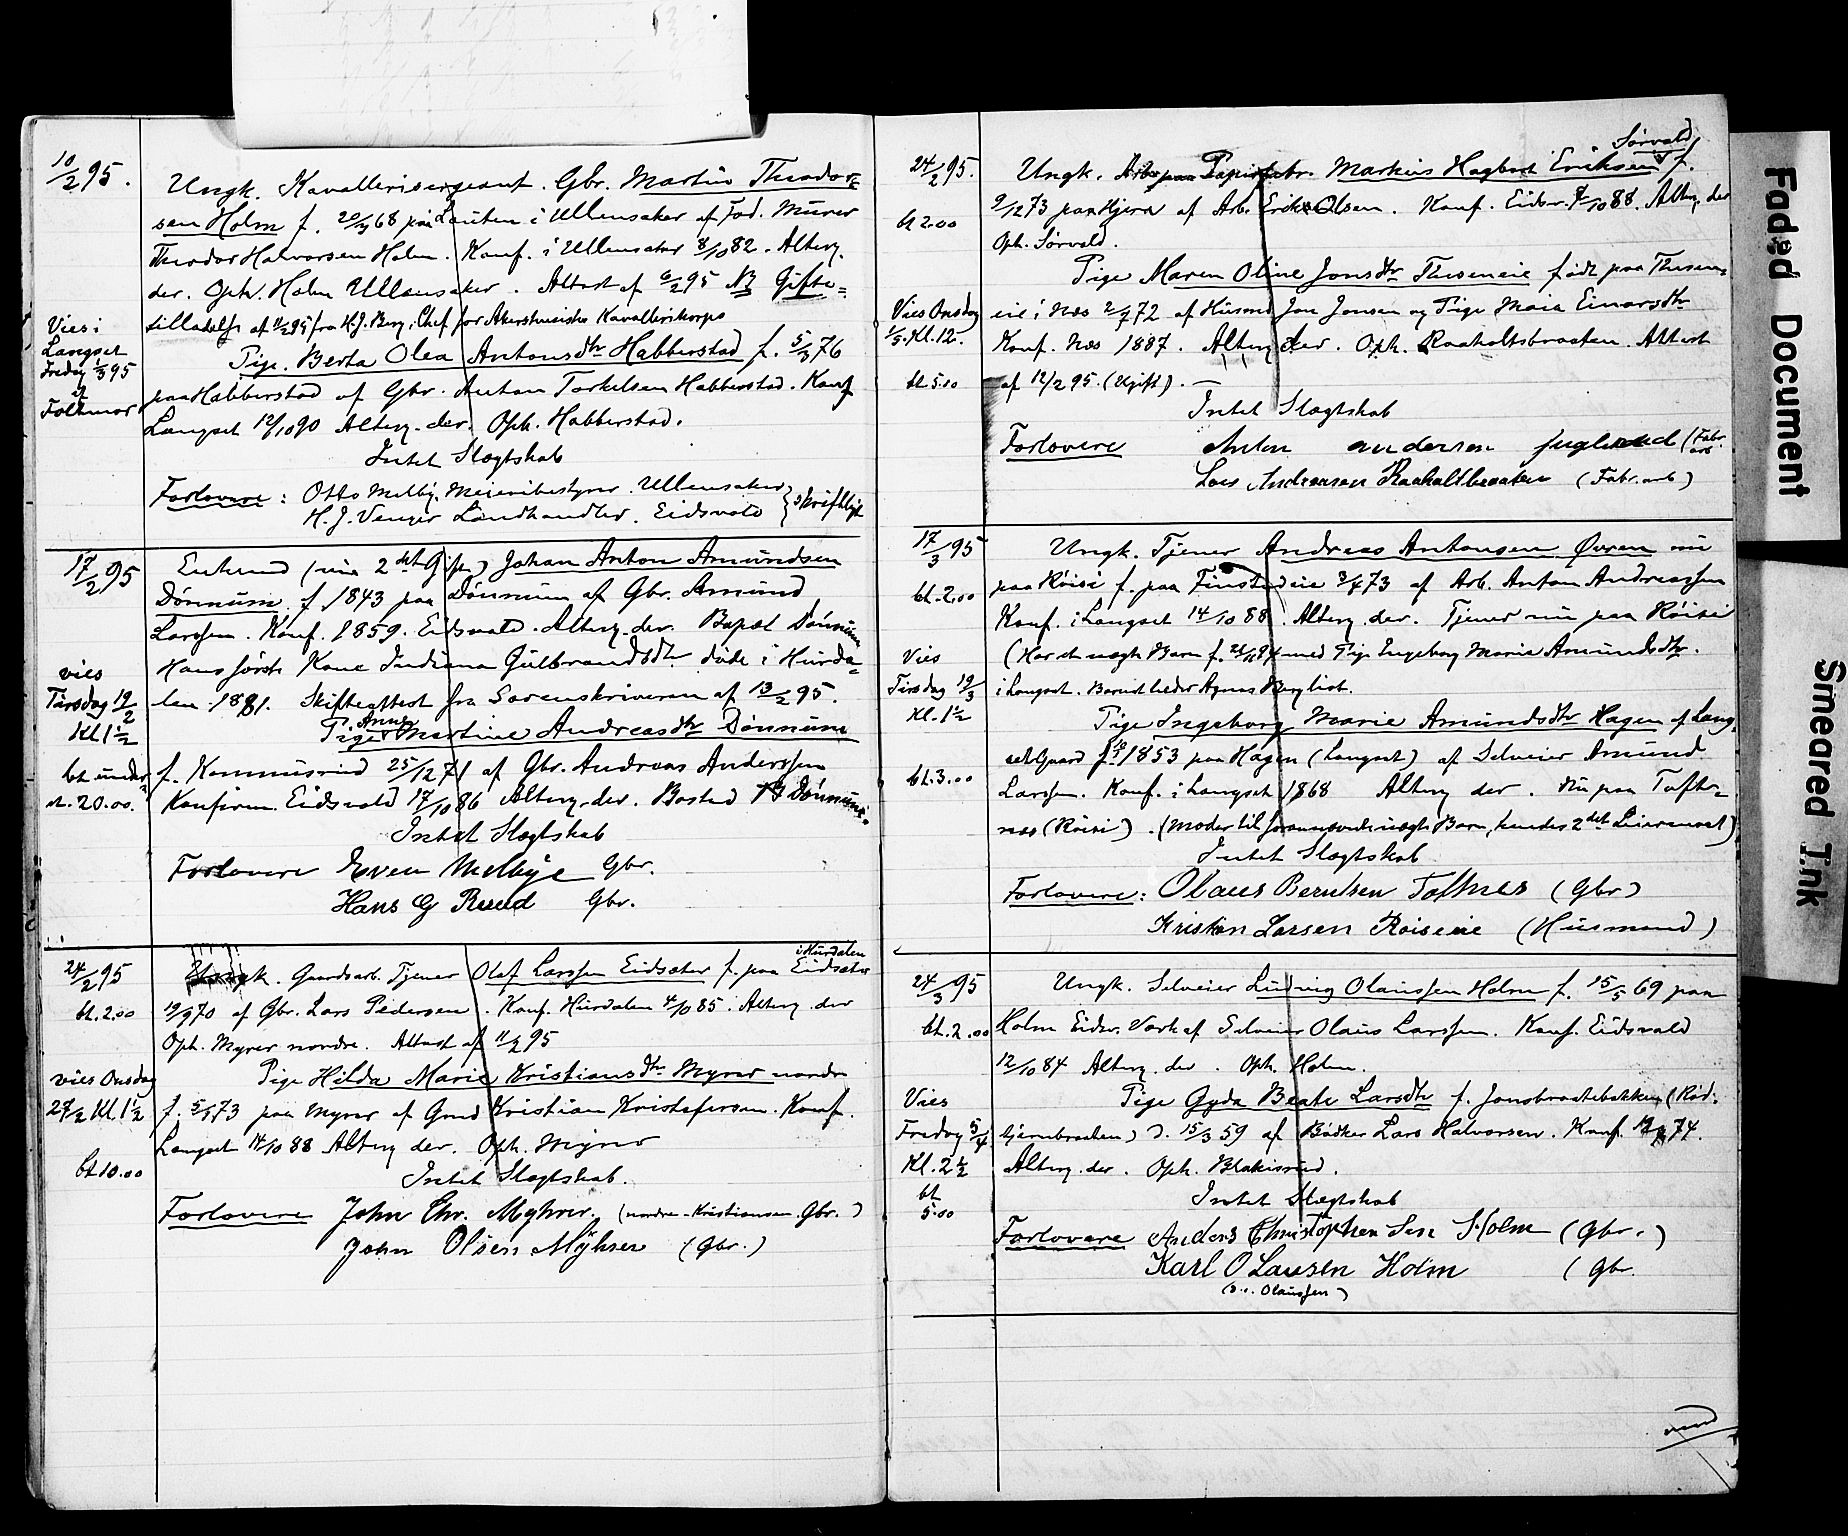 10/2 95.
Ungk. Kavallerisergeant. Gbr. Martin Theodor=
sen Holm f. 68 paa Lauten i Ullensaker af Fad. Murer
Theodor Halvorsen Holm. Konf. i Ullensaker 8/10 82. Alterg.
der. Oph. Holm Ullensaker. Attest af 6/2 95 NB Gifte=
tilladelse af 95 fra H.J. Berg, Chef for Akershusiske Kavallerikorps
Vies i
Langset
Fredag 1/3 95
af
Folkmar
Pige. Berta Olea Antonsdtr Habberstad f. 5/3 76
paa Habberstad af Gbr. Anton Torkelsen Habberstad. Konf
Langset 12/10 90 Alterg. der. Oph. Habberstad.
Intet Slægtskab
Forlovere: Otto Melby, Meieribestyrer. Ullensaker
H. J. Venger Landhandler. Eidsvold } skriftligt
17/2 95
Enkemd (nu 2det Gifte) Johan Anton Amundsen
Dønnum f. 1843 paa Dønnum af Gbr. Amund
Larssen. Konf. 1859. Eidsvold. Alterg. der. Bopæl Dønnum
Hans første Kone Indiana Gulbrandsdtr døde i Hurda=
len 1881. Skifteattest fra Sorenskriveren af 13/2 95.
vies
Tirsdag 19/2
Kl 1 1/2
Anne
Pige Martine Andreasdtr Dønnum
f. Kommisrud 25/12 71 af Gbr. Andreas Anderssen
Konfirm. Eidsvold 17/10 86 Alterg. der. Bosted Dønnum.
bt.
20.00.
Intet Slægtskab
Forlovere Even Melbye Gbr.
Hans G Ruud Gbr.
24/2 95
bt. 2.00
i Hurdalen
Ungk. Gaardsarb. Tjener Olaf Larssen Eidsæter f. paa Eidsæter
70 af Gbr. Lars Pedersen. Konf. Hurdalen 4/10 85. Alterg. der
Oph. Myrer nordre. Attest af 11/2 95
vies Onsdag
27/2 Kl 1 1/2
bt 10.00
Pige Hilda Marie Kristiansdtr Myrer nordre
f. 73 paa Myrer af Gmd Kristian Kristofersen. Konf.
Langset 14/10 88 Alterg der. Oph. Myrer
Intet Slægtskab.
Forlovere John Chr. Myhrer. (nordre. Kristiansen. Gbr.)
John Olsen Myhrer (Gbr.)
24/2 95.
bt 2.00
Sørvald
Ungk. Arb. paa Papirfabr. Markus Hagbart Eriksen f.
9/12 73 paa Hjera af Arb. Erik Olsen. Konf. Eidsv. 7/10 88. Alterg. der
Oph. Sørvald.
Vies Onsdag
1/5. Kl. 12.
bt 5.00
Pige Maren Oline Jonsdtr Thuneneie født paa Thunen=
eie i Næs 72 af Husmd Jon Jonsen og Pige Maria Einarsdtr
Konf. Næs 1887. Alterg der. Oph. Raaholtsbraaten. Attest
af 12/2 95. (Ugift).
Intet Slægtskab
Forlovere Anton andersen fuglerud (Fabr.
arb
Lars Andreasen Raaholtbraaten (Fabr. arb)
17/3 95
bt. 2.00
Ungk. Tjener Andreas Antonsen Øvren nu
paa Røise f. paa Finstadeie 3/4 73 af Arb. Anton Andreassen
Konf. i Langset 14/10 88. Alterg. der. Tjener nu paa Røise
(Har et uægte Barn f. 94 med Pige Ingeborg Marie Amundsdtr.
i Langset. Barnet heder Agnes Bergliot.
Vies
Tirsdag 19/3
Kl. 1 1/2
bt. 3.00
Pige Ingeborg Marie Amundsdtr Hagen af Lang=
setgaard f. 1853 paa Hagen (Langset) af Selveier Amund
Larssen. Konf. i Langset 1868 Alterg der. Nu paa Toftes=
næs (Røise). (Moder til forannævnte uægte Barn, hendes 2det Leiermaal)
Intet Slægtskab
Forlovere: Olaus Berntsen Tofsnes (Gbr)
Kristian Larsen Røiseeie (Husmand)
24/3 95
bt. 2.00
Ungk. Selveier Ludvig Olaussen Holm f. 15/5 69 paa
Holm Eidsv. Verk af Selveier Olaus Larssen. Konf. Eidsvold
12/10 84 Alterg. der. Oph. Holm.
Vies
Fredag 5/4
Kl. 2 1/2
bt
5.00
Pige Gyda Beate Larsdtr f. Jonsbraatebakken (Rød=
tjernbraaten) d. 15/3 59 af Bødker Lars Halvorsen. Konf. 74.
Alterg. der. Oph. Blakisrud.
Intet Slægtskab
Forlovere Anders Christophersen Holm (Gbr.)
Karl OLausen Holm (Gbr.
(o: Olaussen)
Faded Document
Smeared Ink